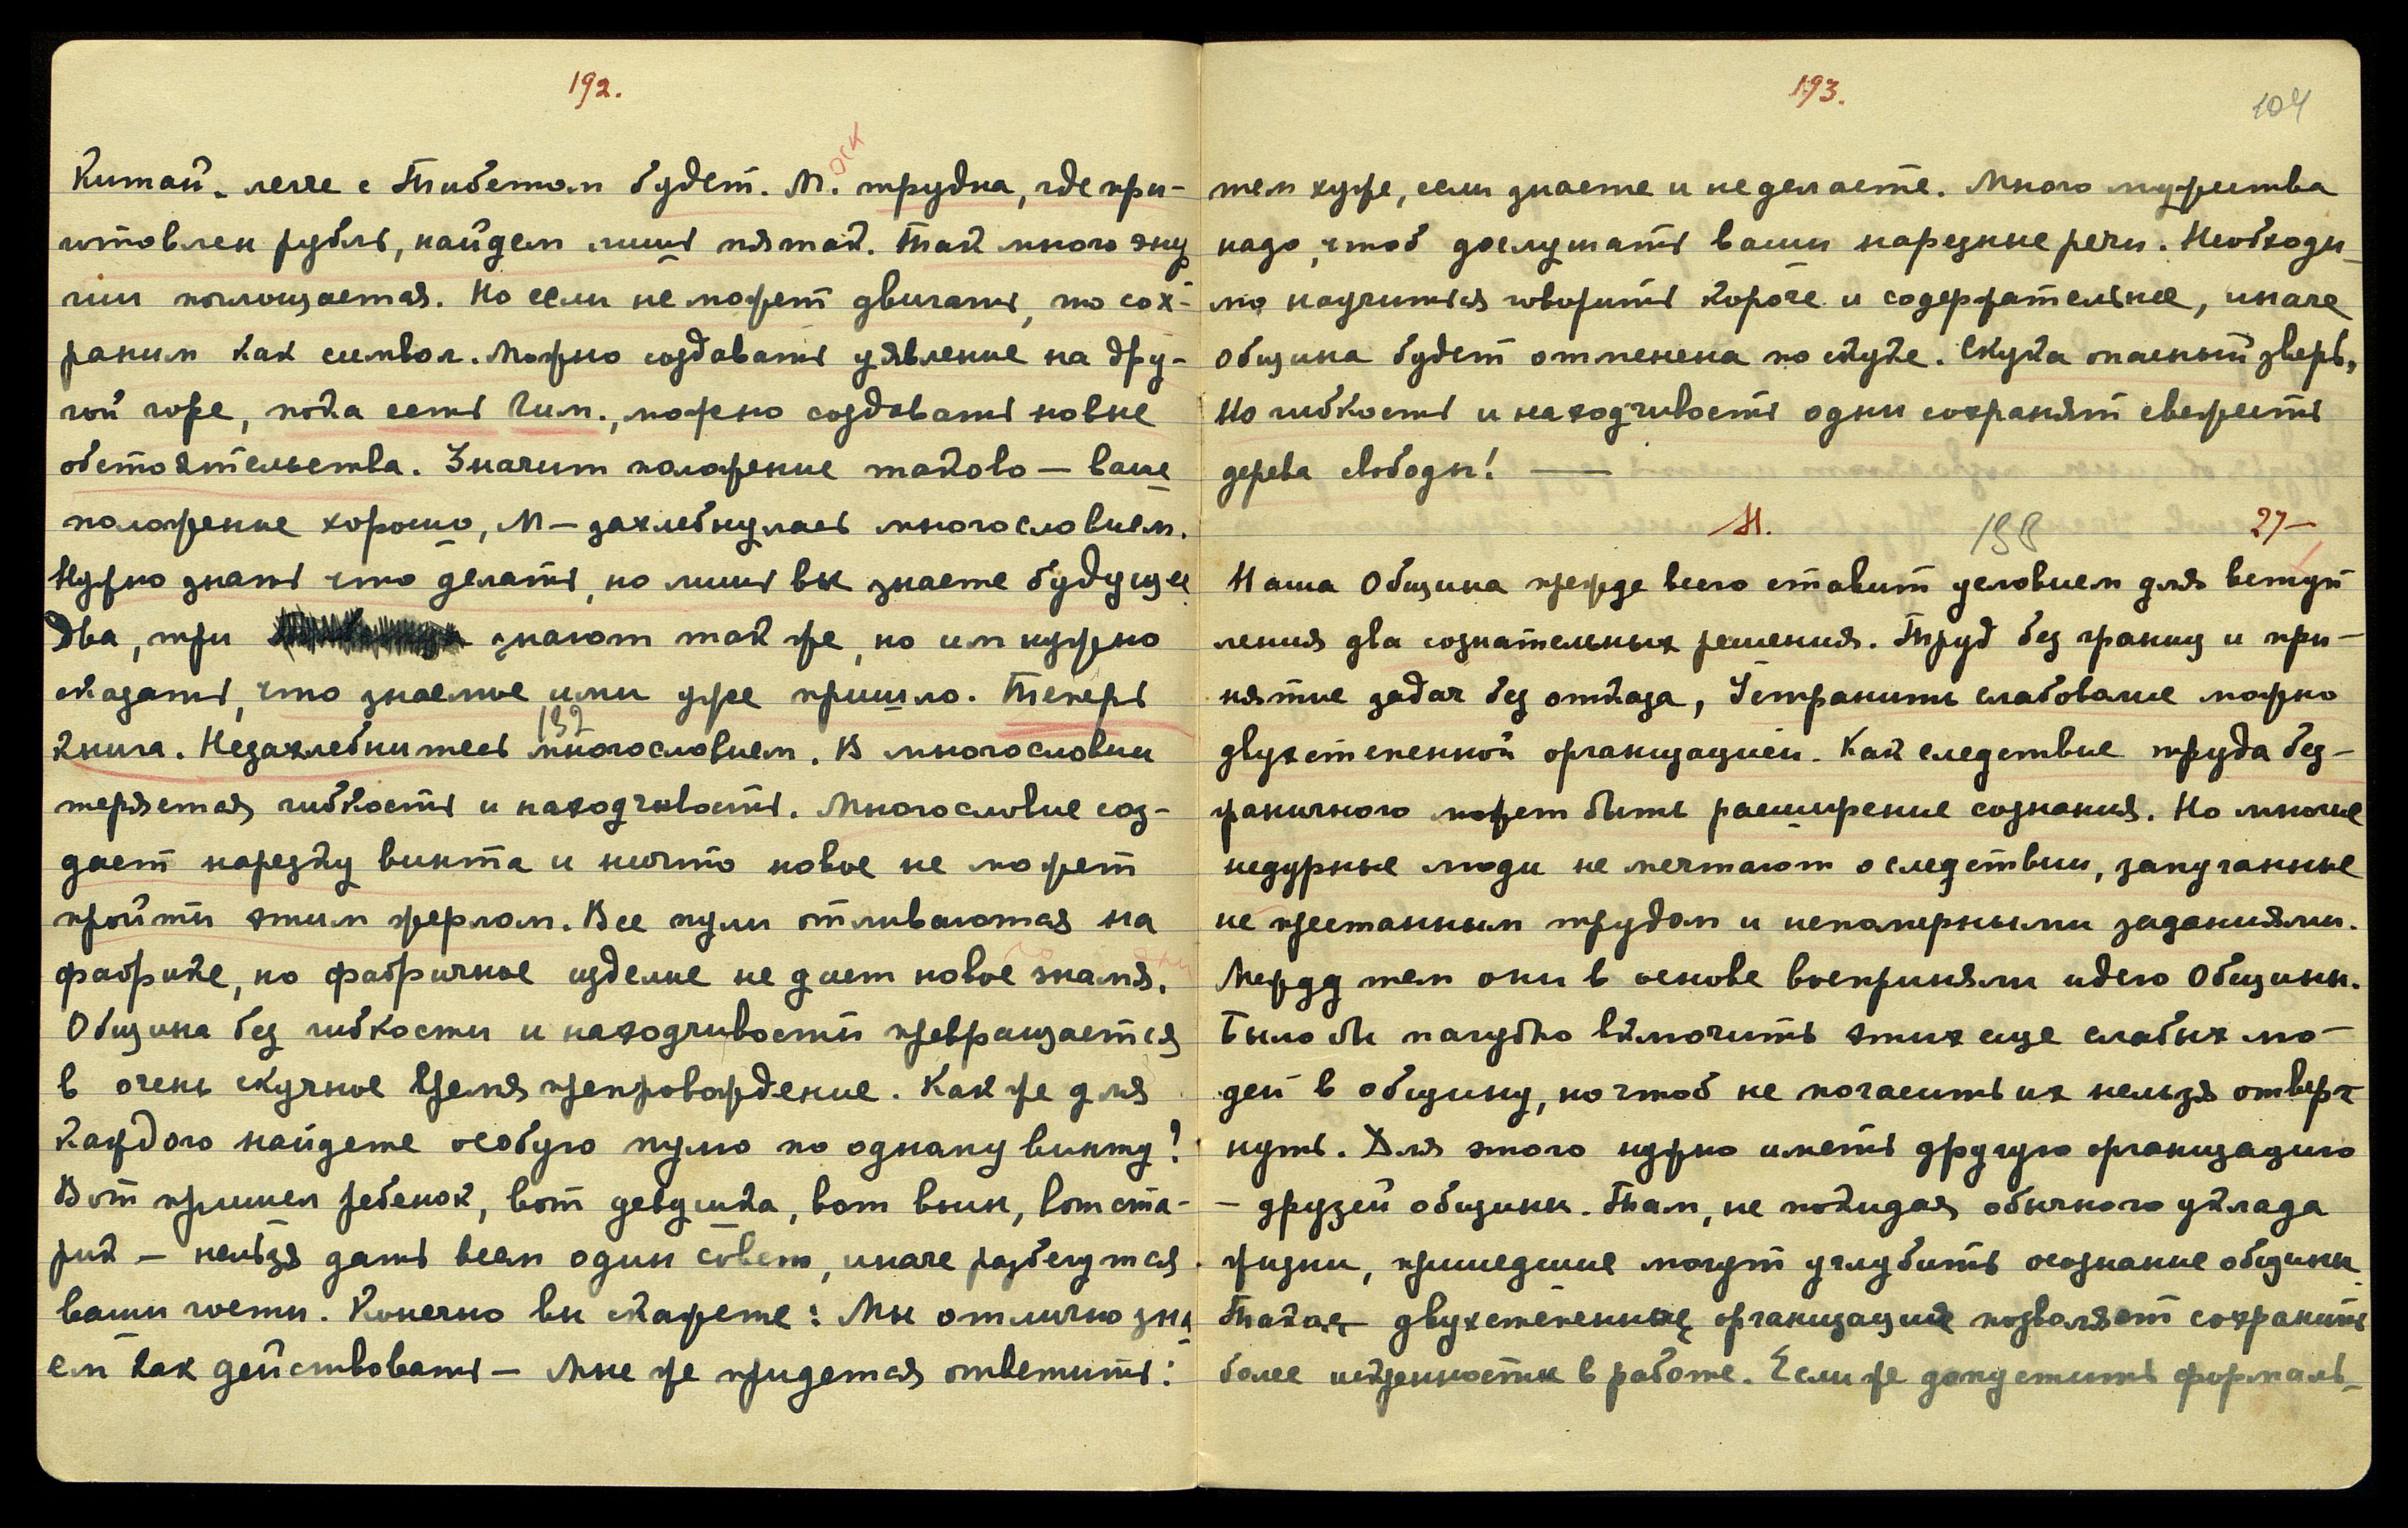 192.
Китай. легче с Тибетом будет. М. оск трудна, где при-
готовлен рубль, найдем лишь пятак. Так много эну
гии поглощается. Но если не может двигать, то сох-
раним как символ. Можно создавать уявление на дру-
гой горе, пока есть Чим., можно создавать новые
обстоятельства. Значит положение таково — ваше
положение хорошо, М — захлебнулась многословием.
Нужно знать что делать, но лишь вы знаете будущее
Два, три знают так же, но им нужно
сказать, что знаемое ими уже пришло. Теперь
132
книга. Незахлебнитесь многословием. В многословии
теряется гибкость и находчивость. Многословие соз-
дает нарезку винта и ничто новое не может
пройти этим жерлом. Все пули отливаются на
фабрике, но фабричное изделие не дает новое знамя.
Община без гибкости и находчивости превращается
в очень скучное время препровождение. Как же для
каждого найдете особую пулю по одному винту?
Вот пришел ребенок, вот девушка, вот воин, вот ста-
рик — нельзя дать всем один совет, иначе разбегутся
ваши гости. Конечно вы скажете: Мы отлично зна
ем как действовать — Мне же придется ответить:
193.
104
тем хуже, если знаете и не делаете. Много мужества
надо, чтоб дослушать ваши нарезные речи. Необходи-
мо научиться говорить короче и содержательнее, иначе
община будет отменена по скуке. Скука опасный зверь,
Но гибкость и находчивость одни сохранят свежесть
дерева свободы! —
Н. 138 27—
Наша Община прежде всего ставит условием для вступ
ления два сознательных решения. Труд без границ и при-
нятие задач без отказа, Устранить слабоволие можно
двухстепенной организацией. Как следствие труда без-
граничного может быть расширение сознания. Но многие
недурные люди не мечтают о следствии, запуганные
не престанным трудом и непомерными заданиями.
Между тем они в основе восприняли идею Общины.
Было бы пагубно включить этих еще слабых лю-
дей в общину, но чтоб не погасить их нельзя отверг
нуть. Для этого нужно иметь другую организацию
— друзей общины. Там, не покидая обычного уклада
жизни, пришедшие могут углубить осознание общины
Такая двухстепенная организация позволяет сохранить
более искренности в работе. Если же допустить формаль-